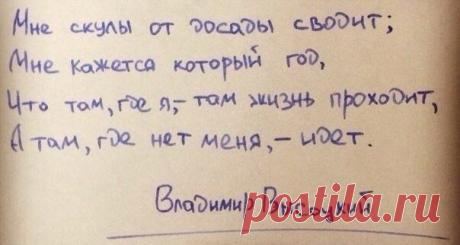 Мне скулы от досады сводит;
Мне кажется который год,
Что там, где я,– там жизнь проходит,
А там, где нет меня,– идет.
Владимир Высоцкий
postila.ru